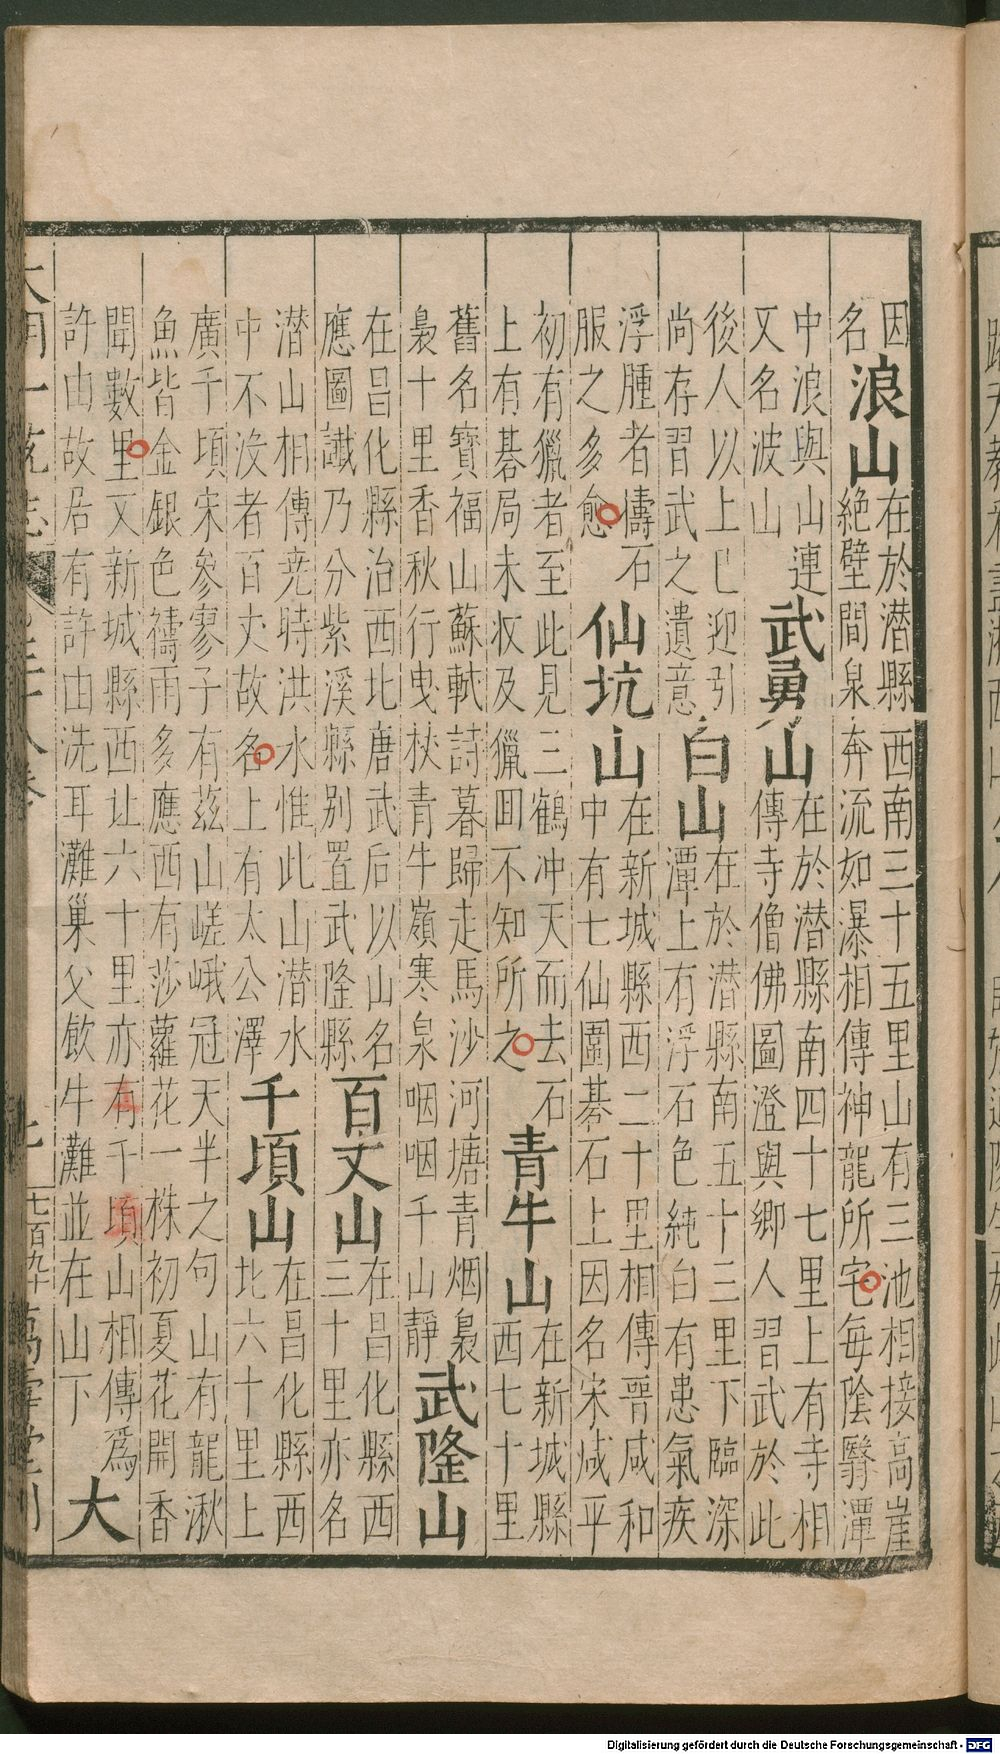 因
名
浪山
在於潛縣西南三十五里山有三池相接高崖
絕壁間泉奔流如瀑相傳神龍所宅每陰翳潭
中浪與山連
又名波山
武勇山
在於潛縣南四十七里上有寺相
傳寺僧佛圖澄與鄉人習武於此
後人以上巳迎引
尚存習武之遺意
白山
在於潛縣南五十三里下臨深
潭上有浮石色純白有患氣疾
浮腫者禱石
服之多愈
仙坑山
在新城縣西二十里相傳晉咸和
中有七仙圍碁石上因名宋咸平
初有獵者至此見三鶴冲天而去石
上有碁局未收及獵囬不知所之
青牛山
在新城縣
西七十里
舊名寶福山蘇軾詩暮歸走馬沙河塘青烟裊
裊十里香秋行曳杖青牛嶺寒泉咽咽千山靜
武隆山
在昌化縣治西北唐武后以山名
應圖讖乃分紫溪縣别置武隆縣
百丈山
在昌化縣西
三十里亦名
潛山相傳堯時洪水惟此山潛水
中不沒者百丈故名上有太公澤
千頃山
在昌化縣西
北六十里上
廣千頃宋參寥子有茲山嵯峨冠天半之句山有龍湫
魚皆金銀色禱雨多應西有莎蘿花一株初夏花開香
聞數里又新城縣西北六十里亦有千頃山相傳爲
許由故居有許由洗耳灘巢父飲牛灘並在山下
大
大明一統志
七百九十
萬壽堂刊
Digitalisierung gefördert durch die Deutsche Forschungsgemeinschaft - DFG